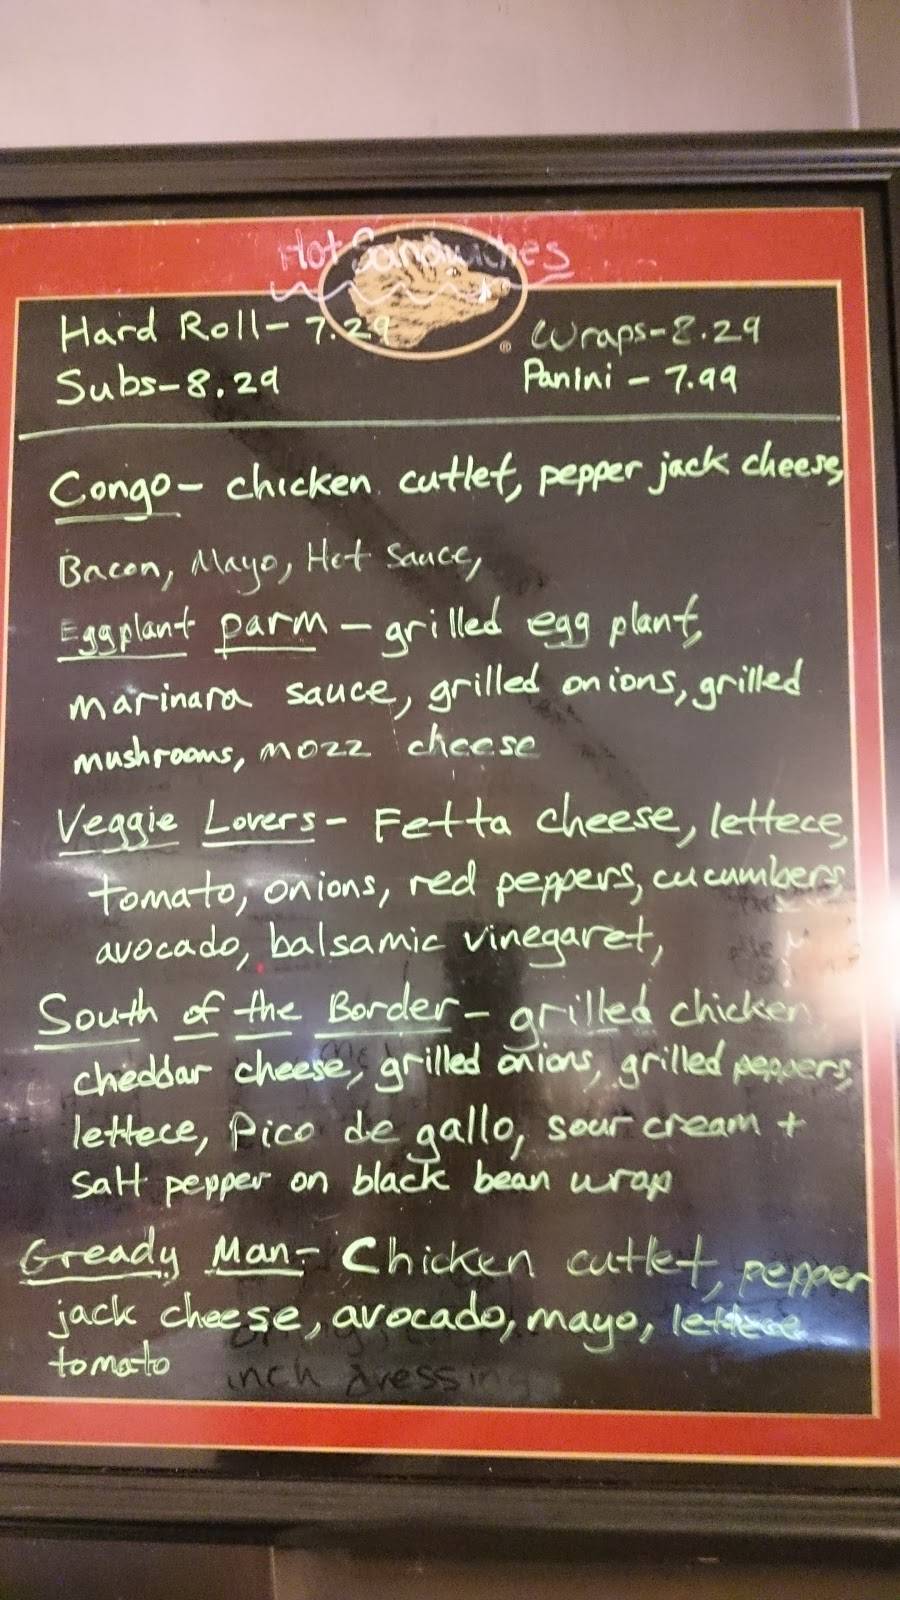 Hot Sandwiches
Hard Roll - 7.29
Wraps - 8.29
Subs - 8.29
Panini - 7.99
Congo - chicken cutlet, pepper jack cheese,
Bacon, Mayo, Hot Sauce,
Eggplant parm - grilled egg plant,
marinara sauce, grilled onions, grilled
mushrooms, mozz cheese
Veggie Lovers - Fetta cheese, lettece,
tomato, onions, red peppers, cucumbers,
avocado, balsamic vinegaret,
South of the Border - grilled chicken,
cheddar cheese, grilled onions, grilled peppers,
lettece, Pico de gallo, sour cream +
Salt pepper on black bean wrap
Gready Man - Chicken cutlet, pepper
jack cheese, avocado, mayo, lettece
tomato
inch dressing